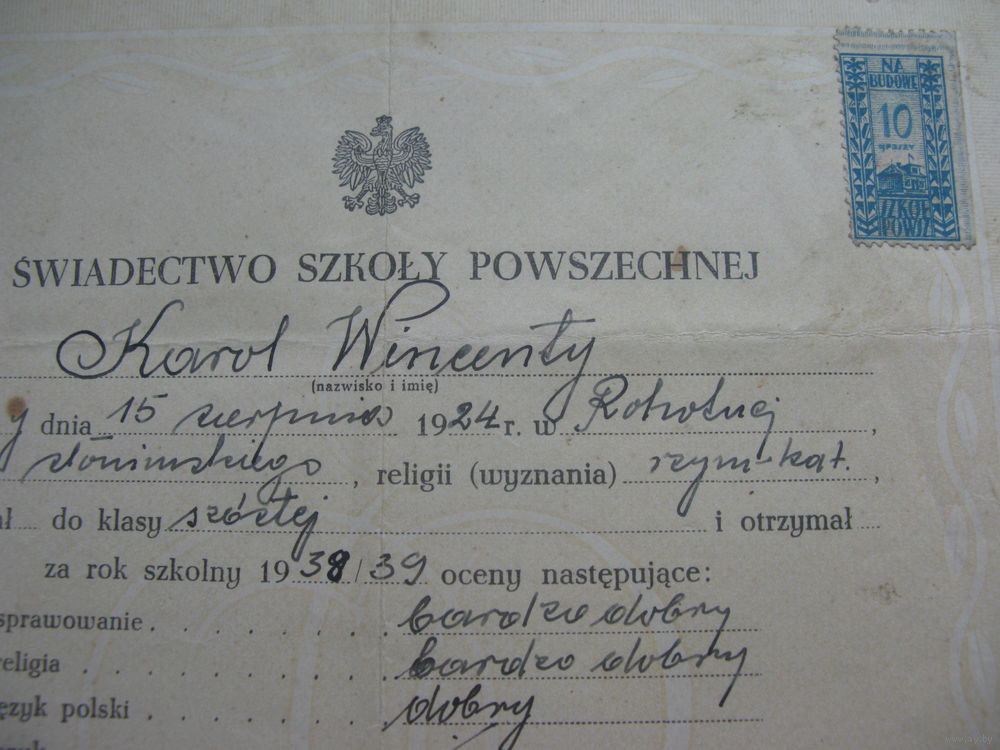 NA
BUDOWĘ
10
groszy
SZKÓŁ
POWSZ
ŚWIADECTWO SZKOŁY POWSZECHNEJ
Karol Wincenty
(nazwisko i imię)
y dnia 15 sierpnia 1924 r. w Rohotnej,
słonimskiego, religii (wyznania) rzym-kat.,
ał do klasy szóstej i otrzymał
za rok szkolny 1938/39 oceny następujące:
sprawowanie bardzo dobry
religia bardzo dobry
język polski dobry